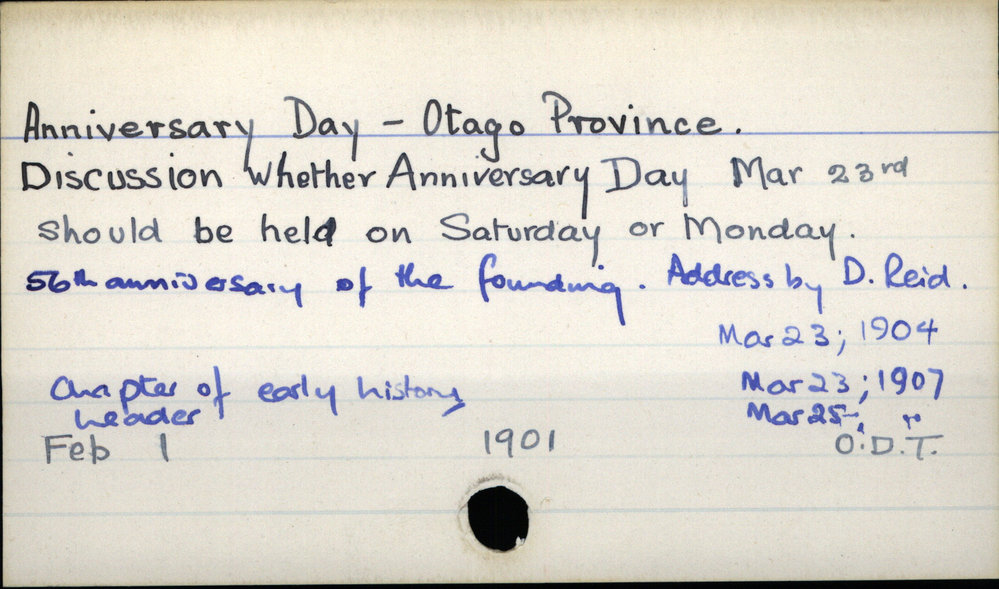 Anniversary Day - Otago Province.
Discussion whether Anniversary Day Mar 23rd
should be held on Saturday or Monday.
56th anniversary of the founding. Address by D. Reid.
Mar 23; 1904
Chapter of early history Mar 23; 1907
Leader Mar 25; "
Feb 1 1901 O.D.T.